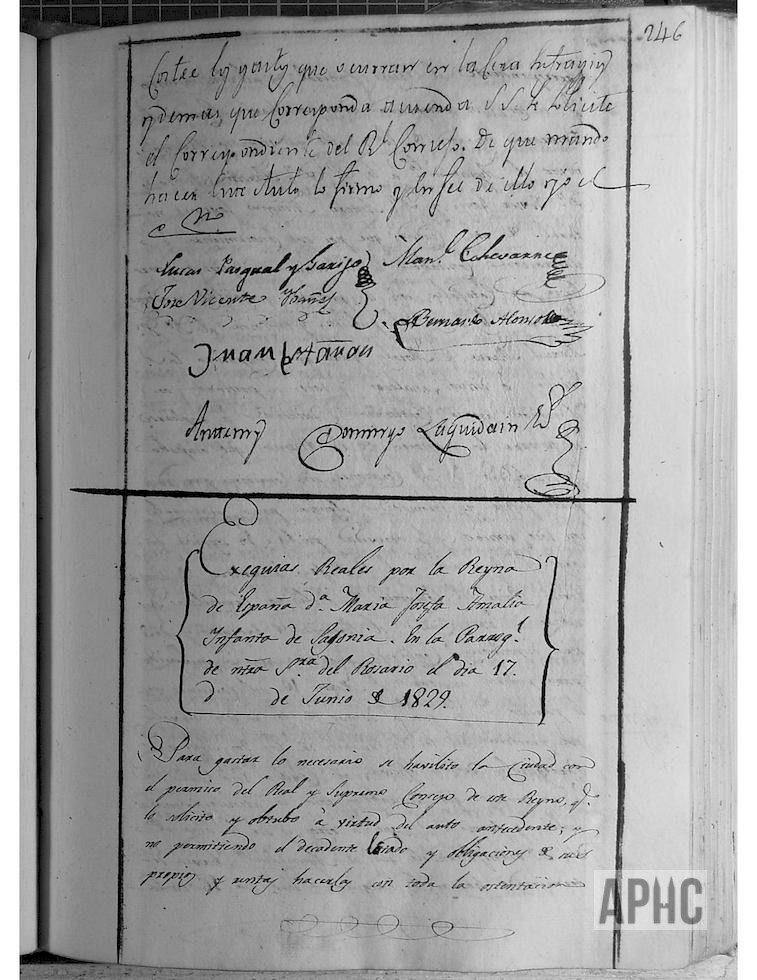 246
Costee los gastos que ocurran en la Cera
y demas que Corresponda a cuenda S.S. se solicite
el Correspondiente del Rl. Consejo. De que mando
hacer este Auto lo firmo y en fee de ello yo el
no.
Lucas Pasqual y Garijo Manl. Echevarria
Jose Vicente Ybañes
Bernardo Alonso
Juan
Antemy Domingo Laguidain
Exequias Reales por la Reyna
de España da. Maria Josefa Amalia
Infanta de Sajonia. En la Parroql.
de ntra Sra. del Rosario el dia 17.
de Junio 1829.
Para gastar lo necesario se havilito la Ciudad con
el permiso del Real y Supremo Consejo de este Reyno, qe.
lo solicito y obtubo a virtud del auto antecedente; y
no permitiendo el decadente Estado y obligaciones de sus
propios y rentas hacerlas con toda la ostentacion
APHC